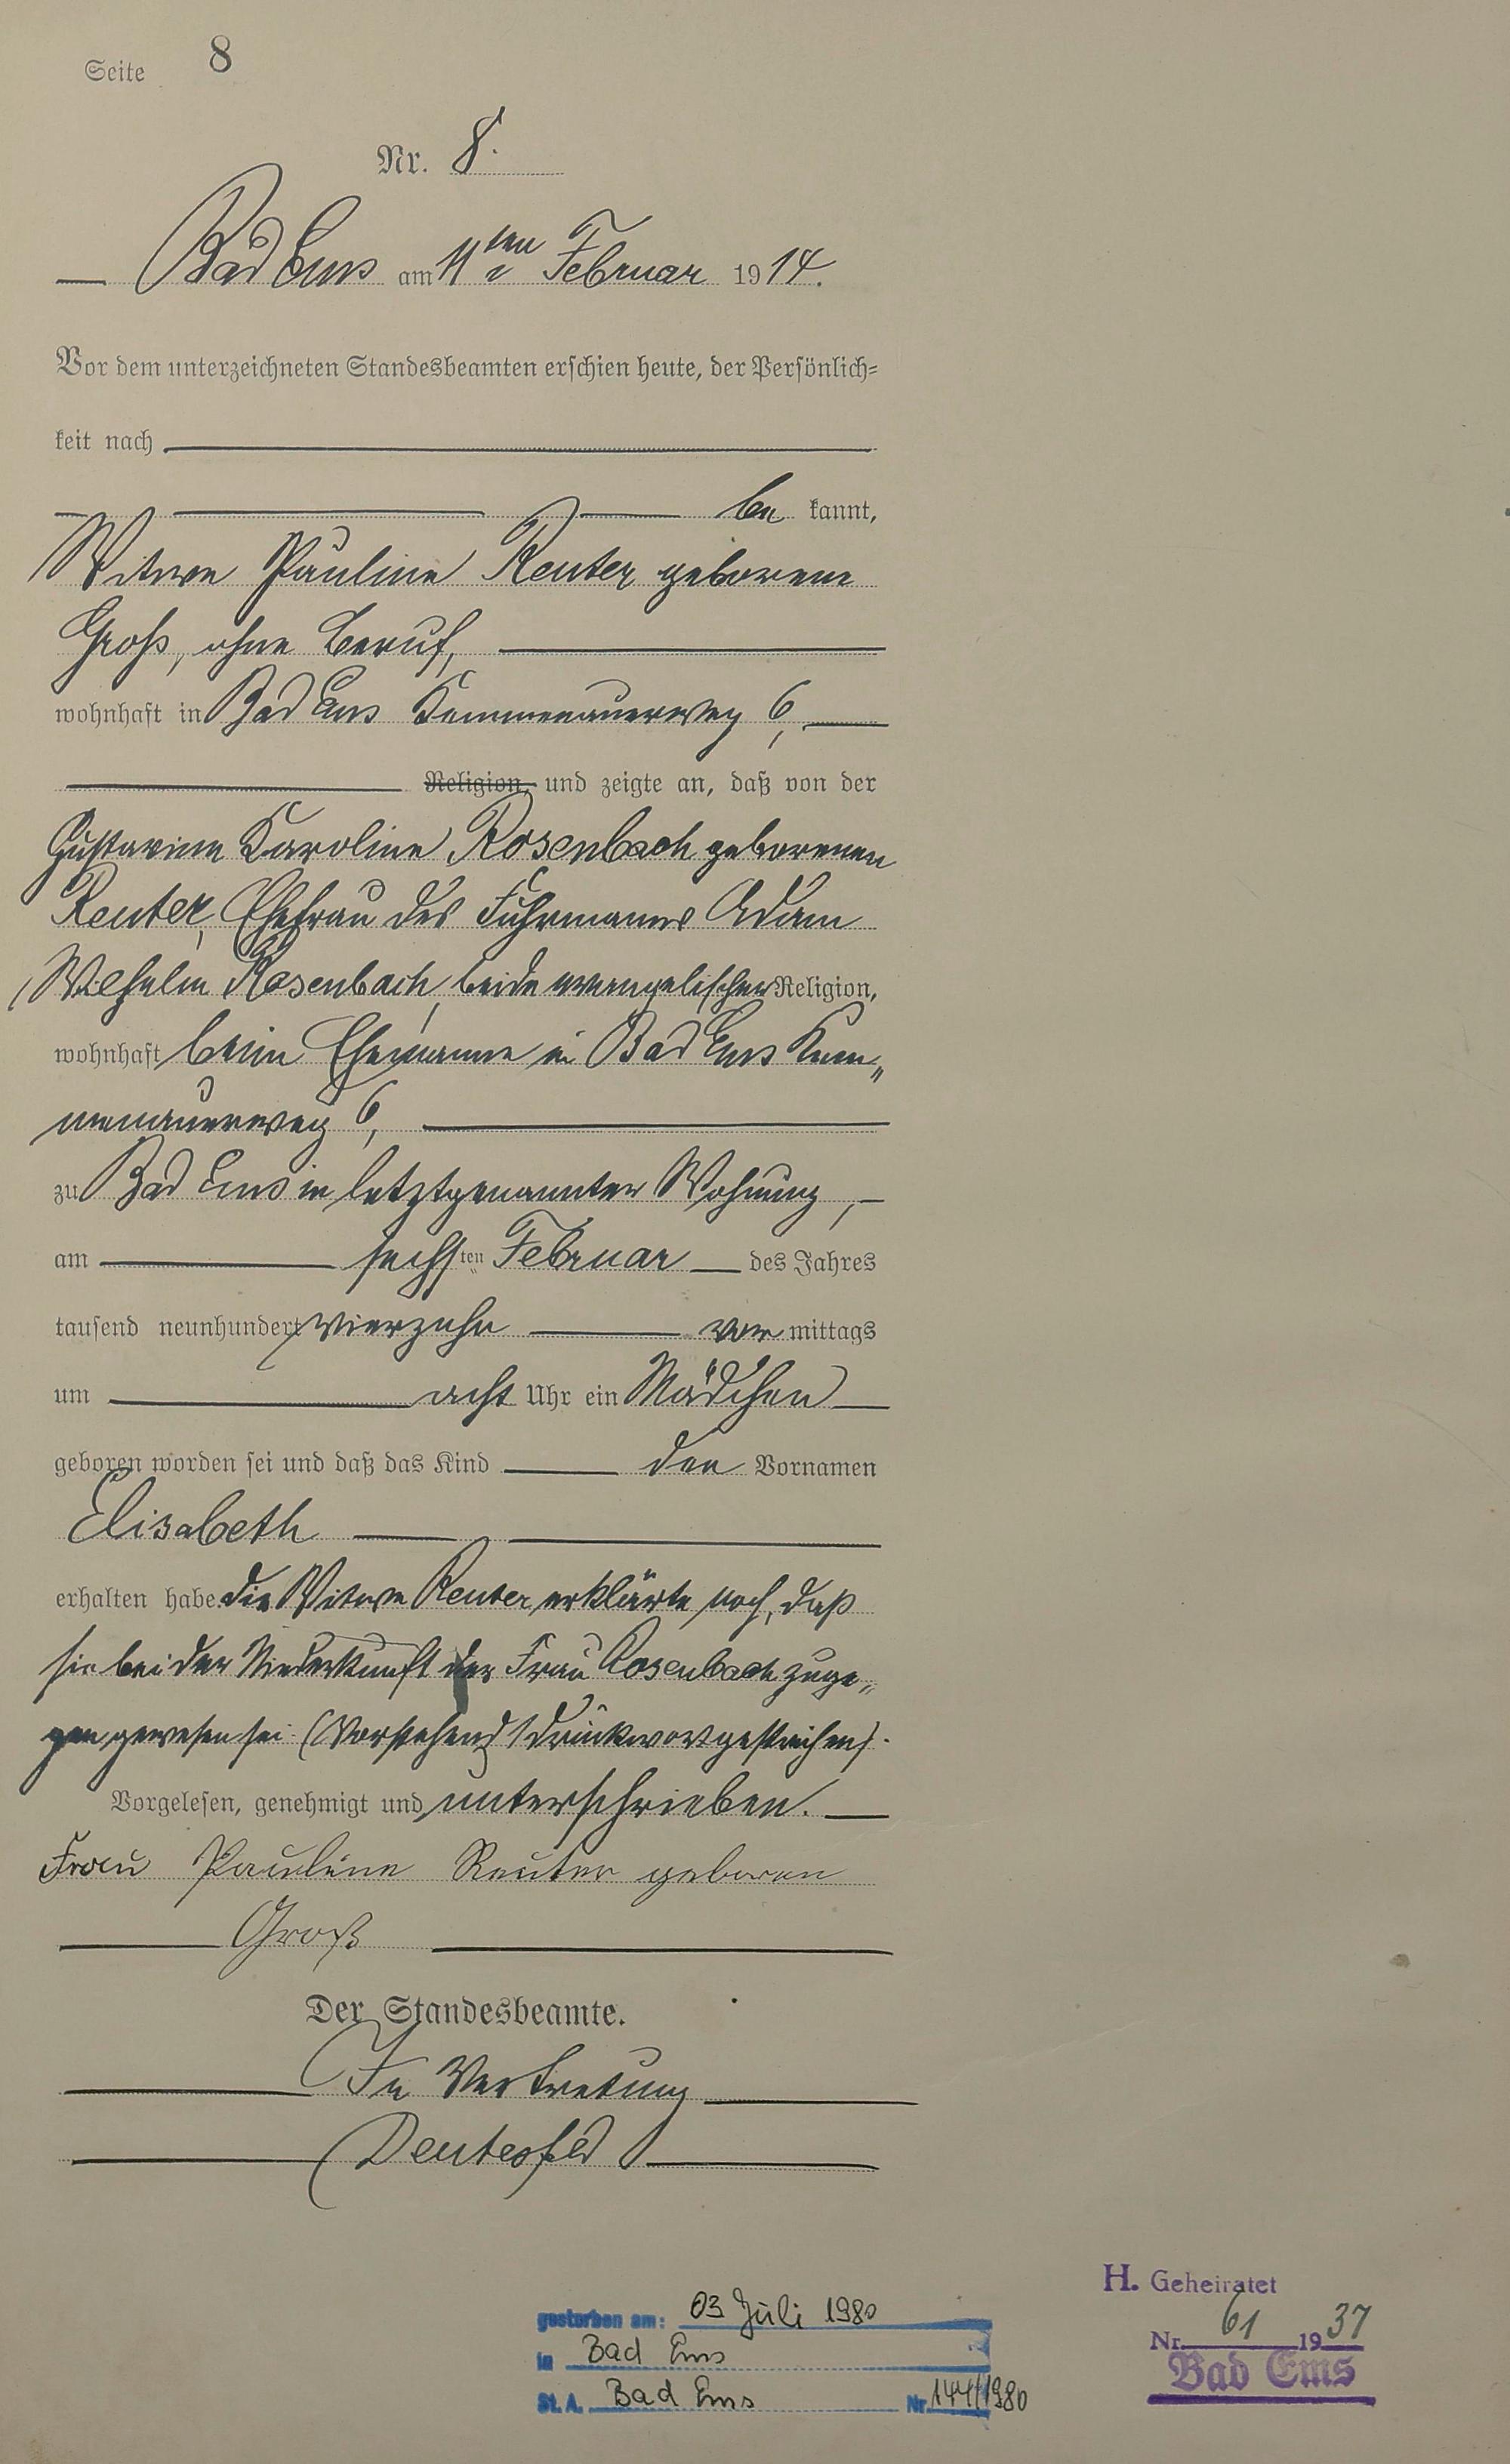 Seite 8
Nr. 8.
Bad Ems am 11ten Februar 1914.
Vor dem unterzeichneten Standesbeamten erschien heute, der Persönlich-
keit nach
be kannt,
Witwe Pauline Reuter geborene
Groß, ohne Beruf,
wohnhaft in Bad Ems Kemmenauerweg 6,
Religion, und zeigte an, daß von der
Karoline Rosenbach geborenen
Reuter, Ehefrau des Fuhrmanns Adam
Wilhelm Rosenbach, beide evangelischer Religion,
wohnhaft beim Ehemanne in Bad Ems Kem„
menauerweg 6,
zu Bad Ems in letztgenannter Wohnung,
am sechsten Februar des Jahres
tausend neunhundert vierzehn vor mittags
um acht Uhr ein Mädchen
geboren worden sei und daß das Kind den Vornamen
Elisabeth
erhalten habe die Witwe Reuter erklärte noch, daß
sie bei der Niederkunft der Frau Rosenbach zuge„
gen gewesen sei (Vorstehend 1 Druckwort gestrichen).
Vorgelesen, genehmigt und unterschrieben.
Frau Pauline Reuter geboren
Groß
Der Standesbeamte.
In Vertretung
H. Geheiratet
Nr. 61 1937
Bad Ems
gestorben am: 03 Juli 1980
in Bad Ems
St. A. Bad Ems Nr. 144/1980